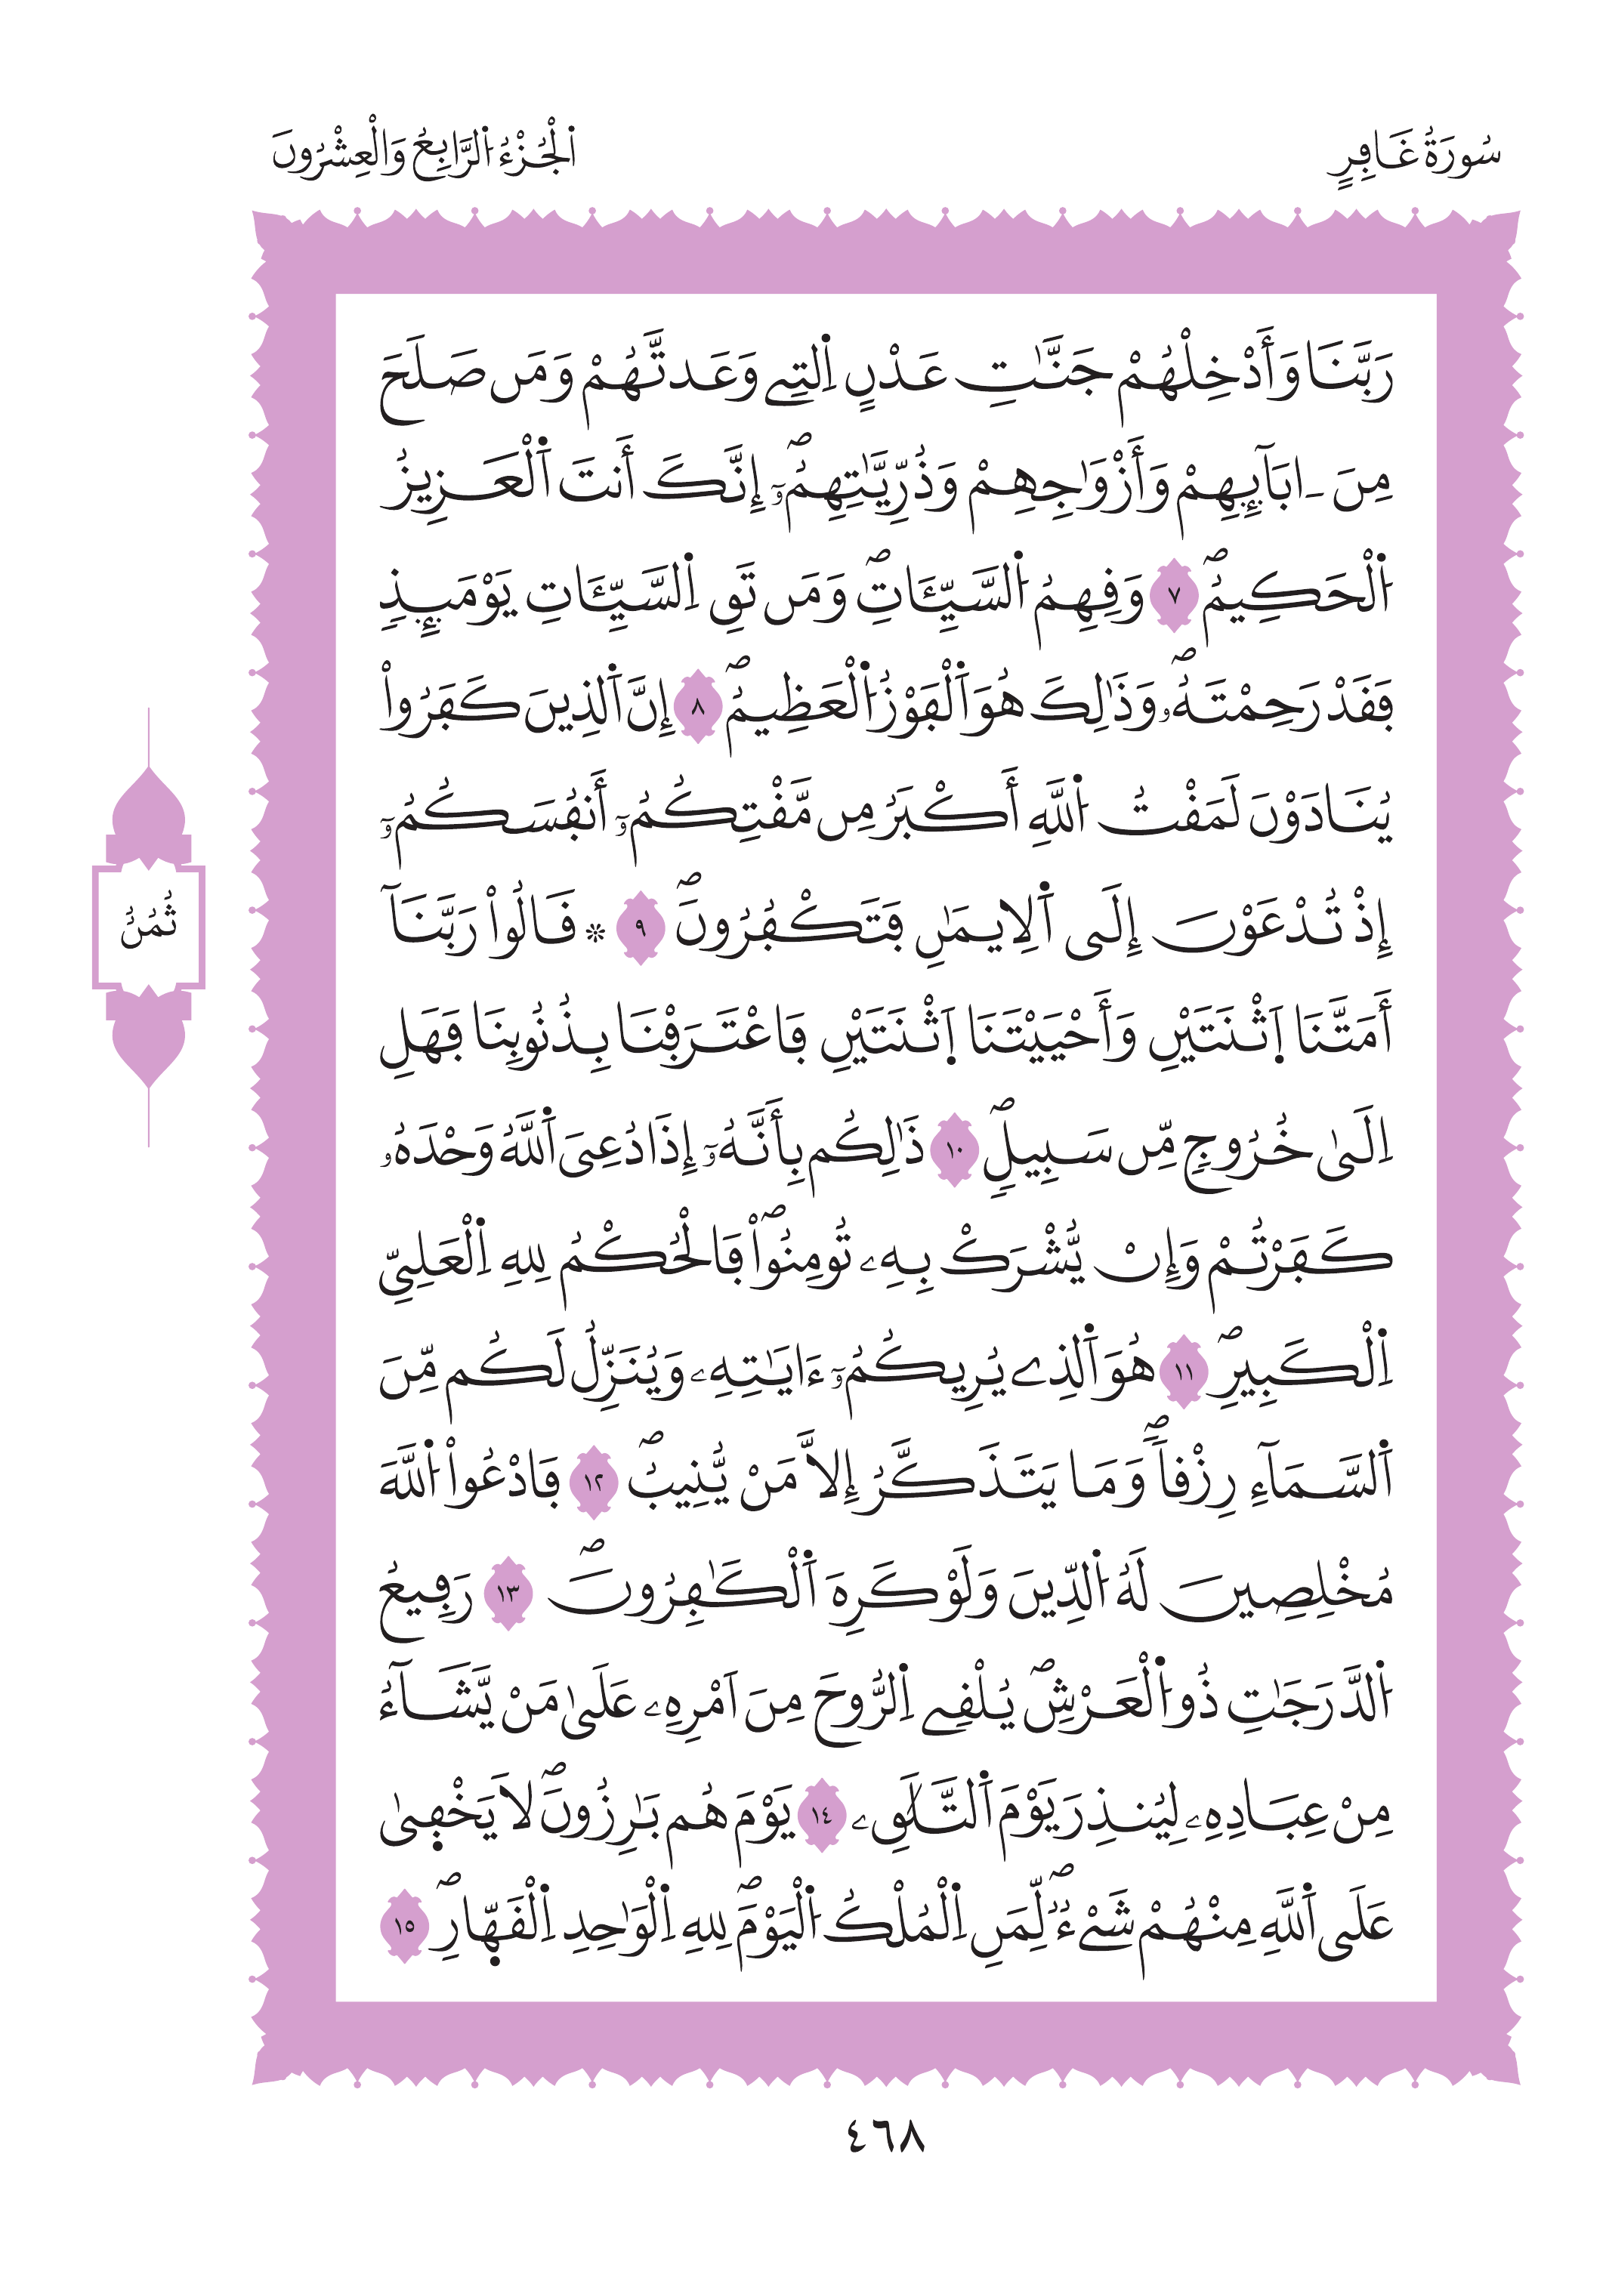 سُورَةُ غَافِرٍ
اَ۬لْجُزْءُ اُ۬لرَّابِعُ وَالْعِشْرُونَ
رَبَّنَا وَأَدْخِلْهُمْ جَنَّٰتِ عَدْنٍ اِ۬لتِے وَعَدتَّهُمْ وَمَن صَلَحَ
مِنَ اٰبَآئِهِمْ وَأَزْوَٰجِهِمْ وَذُرِّيَّٰتِهِمُۥٓۖ إِنَّكَ أَنتَ اَ۬لْعَزِيزُ
اُ۬لْحَكِيمُۖ ٧ وَقِهِمُ اُ۬لسَّيِّـَٔاتِۖ وَمَن تَقِ اِ۬لسَّيِّـَٔاتِ يَوْمَئِذٖ
فَقَدْ رَحِمْتَهُۥۖ وَذَٰلِكَ هُوَ اَ۬لْفَوْزُ اُ۬لْعَظِيمُۖ ٨ إِنَّ اَ۬لذِينَ كَفَرُواْ
يُنَادَوْنَ لَمَقْتُ اُ۬للَّهِ أَكْبَرُ مِن مَّقْتِكُمُۥٓ أَنفُسَكُمُۥٓ
إِذْ تُدْعَوْنَ إِلَى اَ۬لِايمَٰنِ فَتَكْفُرُونَۖ ٩ ۞ قَالُواْ رَبَّنَآ
أَمَتَّنَا اَ۪ثْنَتَيْنِ وَأَحْيَيْتَنَا اَ۪ثْنَتَيْنِ فَاعْتَرَفْنَا بِذُنُوبِنَا فَهَلِ
اِلَىٰ خُرُوجٖ مِّن سَبِيلٖۖ ١٠ ذَٰلِكُم بِأَنَّهُۥٓ إِذَا دُعِيَ اَ۬للَّهُ وَحْدَهُۥ
كَفَرْتُمْ وَإِنْ يُّشْرَكْ بِهِۦ تُومِنُواْۖ فَالْحُكْمُ لِلهِ اِ۬لْعَلِيِّ
اِ۬لْكَبِيرِۖ ١١ هُوَ اَ۬لذِے يُرِيكُمُۥٓ ءَايَٰتِهِۦ وَيُنَزِّلُ لَكُم مِّنَ
اَ۬لسَّمَآءِ رِزْقاٗۖ وَمَا يَتَذَكَّرُ إِلَّا مَنْ يُّنِيبُۖ ١٢ فَادْعُواْ اُ۬للَّهَ
مُخْلِصِينَ لَهُ اُ۬لدِّينَ وَلَوْ كَرِهَ اَ۬لْكَٰفِرُونَۖ ١٣ رَفِيعُ
اُ۬لدَّرَجَٰتِ ذُو اُ۬لْعَرْشِۖ يُلْقِے اِ۬لرُّوحَ مِنَ اَمْرِهِۦ عَلَىٰ مَنْ يَّشَآءُ
مِنْ عِبَادِهِۦ لِيُنذِرَ يَوْمَ اَ۬لتَّلَٰقِۦ ١٤ يَوْمَ هُم بَٰرِزُونَۖ لَا يَخْف۪ىٰ
عَلَى اَ۬للَّهِ مِنْهُمْ شَےْءٞۖ لِّمَنِ اِ۬لْمُلْكُ اُ۬لْيَوْمَۖ لِلهِ اِ۬لْوَٰحِدِ اِ۬لْقَهّ۪ارِۖ ١٥
ثُمُنُ
٤٦٨